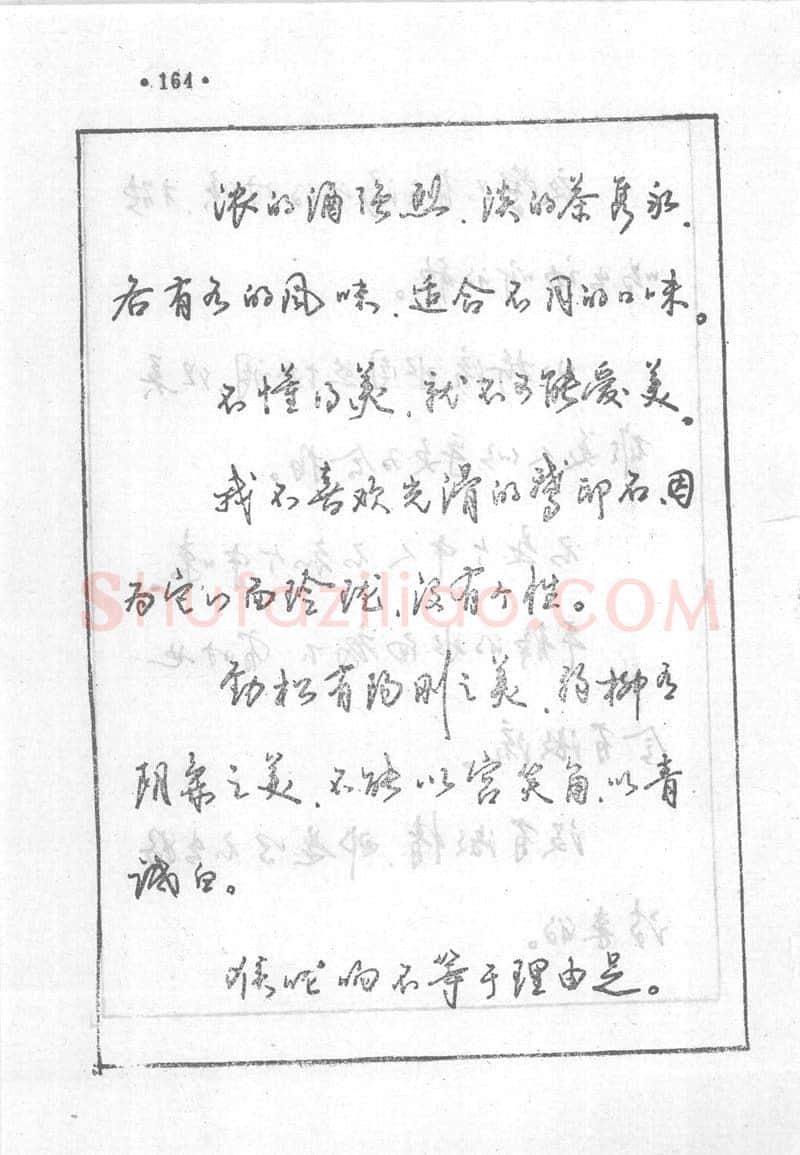 ·164·
浓的酒强烈、淡的茶隽永、
各有各的风味、适合不同的口味。
不懂得美、就不可能爱美。
我不喜欢光滑的鹅卵石、因
为它八面玲珑、没有个性。
Shufaziliao.COM
劲松有阳刚之美、杨柳有
阴柔之美、不能以宫笑角、以青
诚白。
嗓门响不等于理由足。